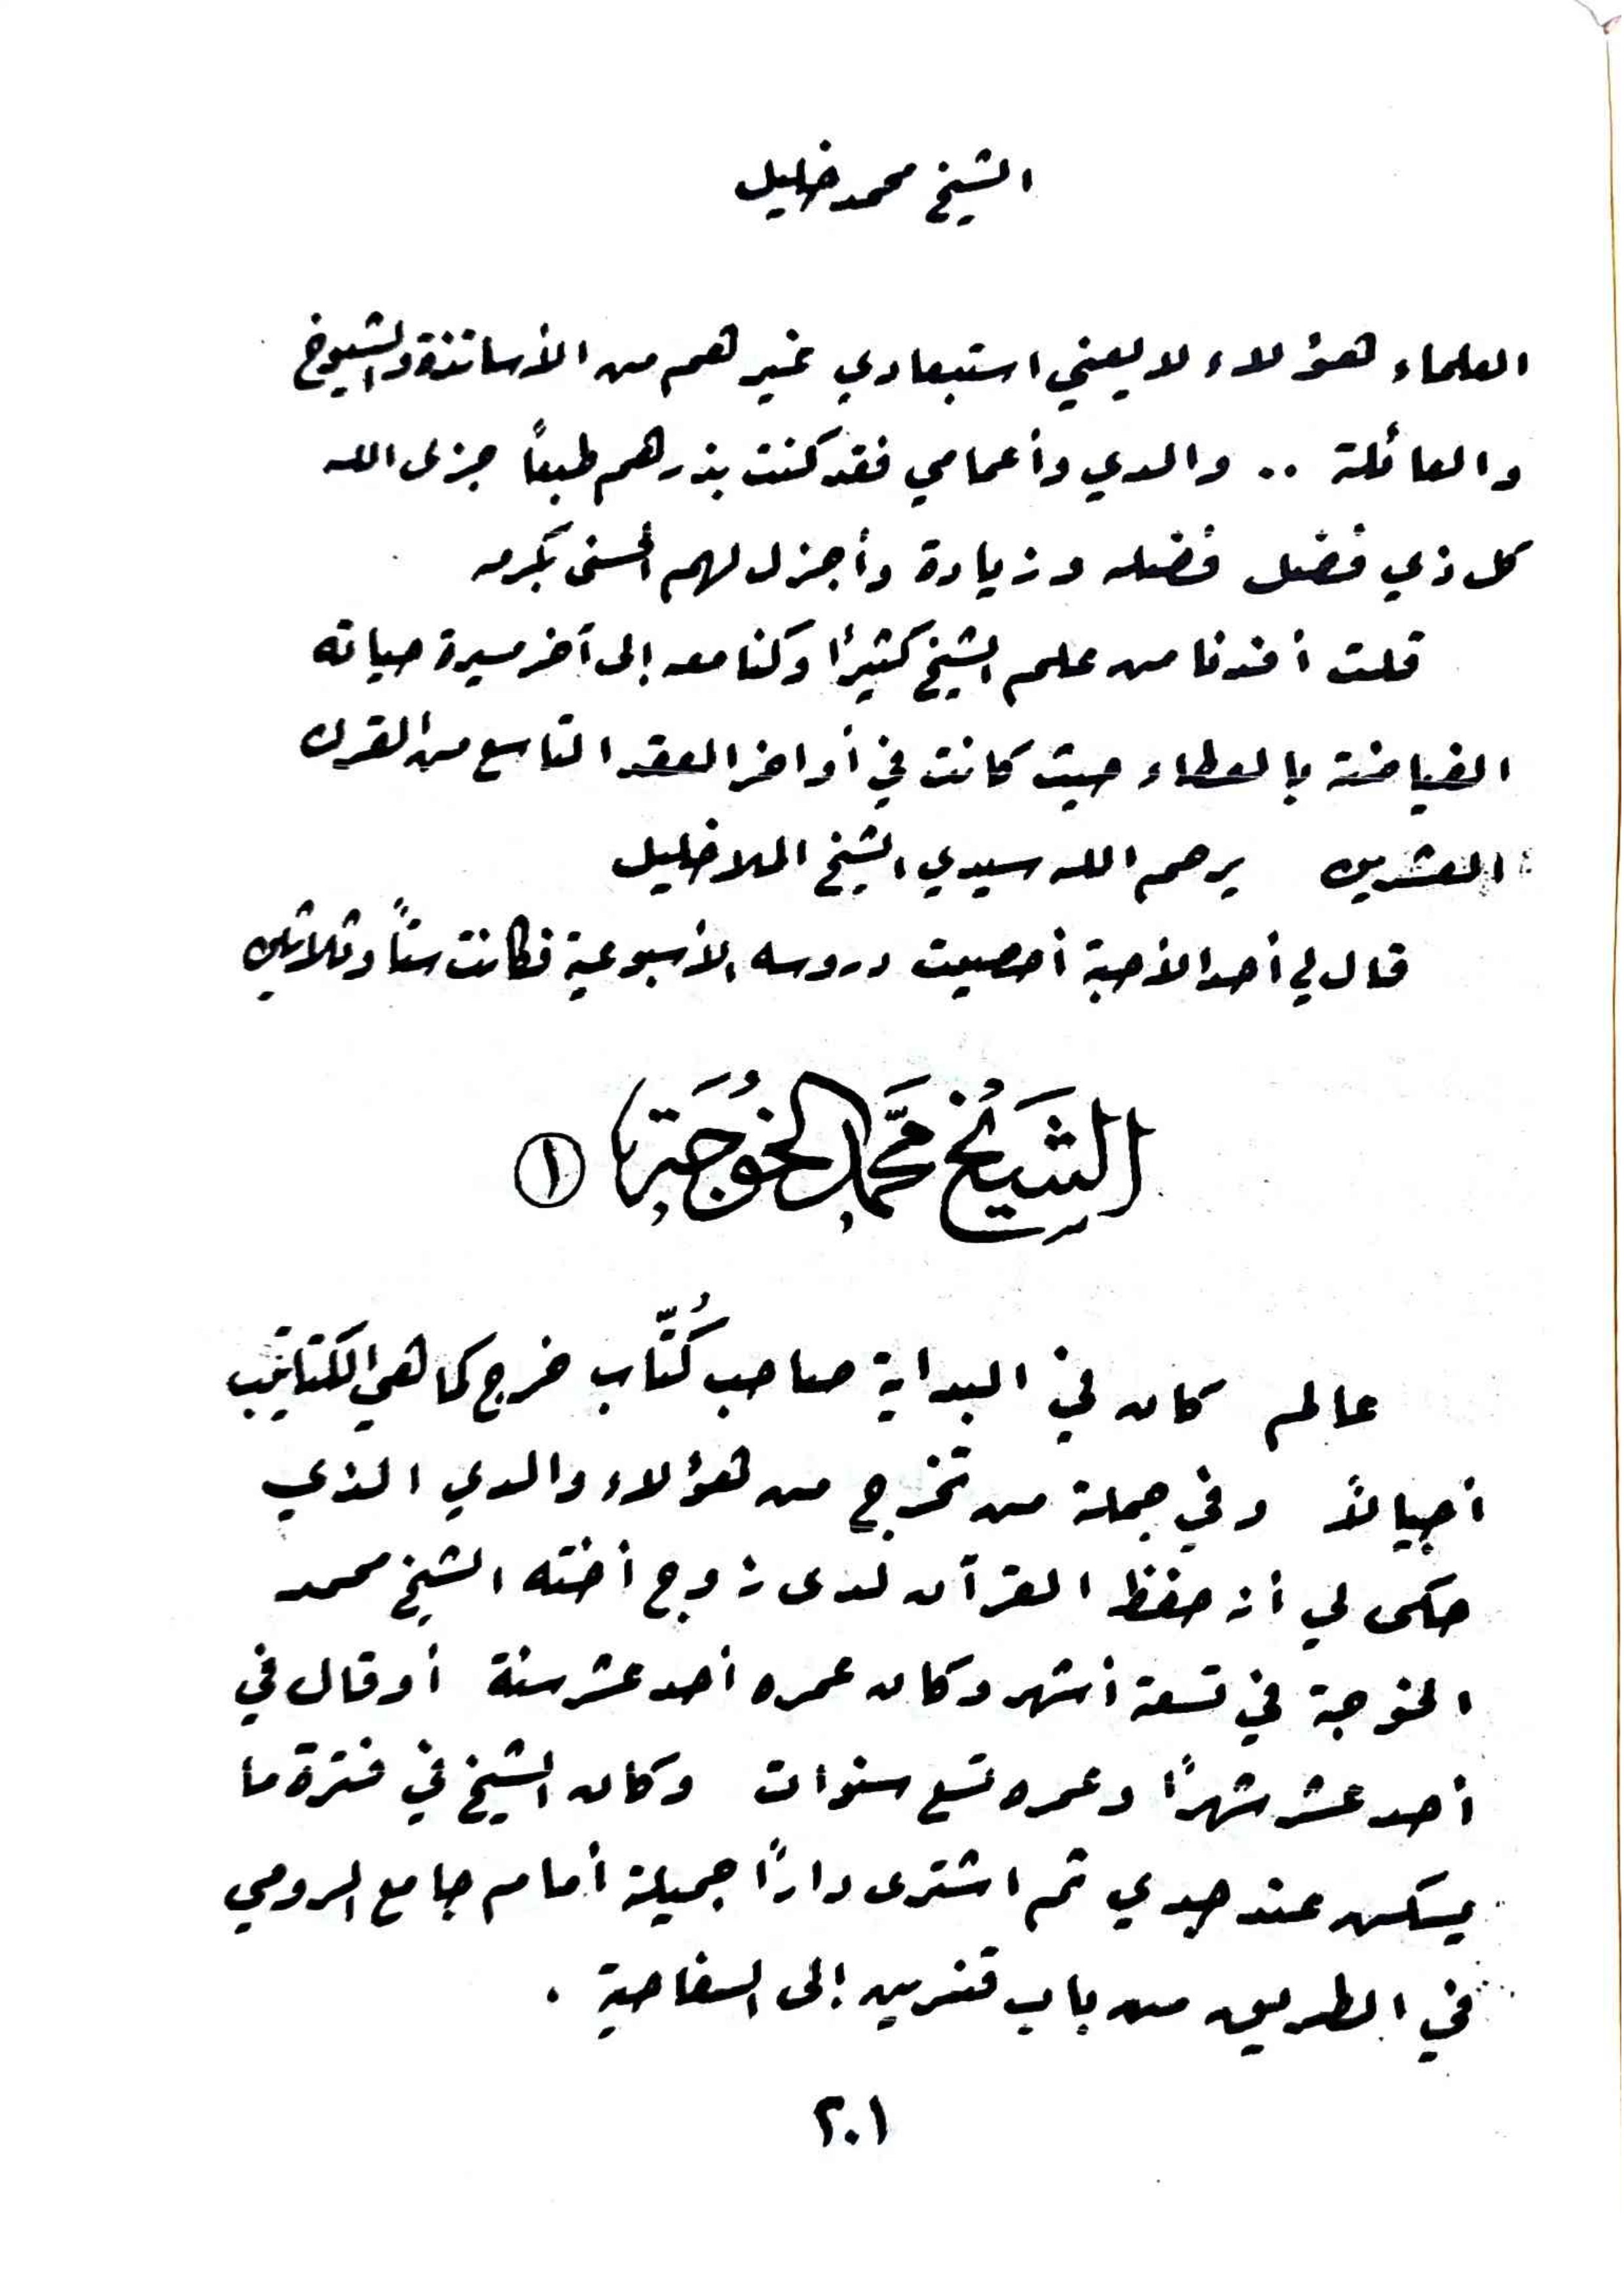 الشيخ محمد خليل
العلماء هؤلاء لا يعني استبعادي غيرهم من الأساتذة والشيوخ
والعائلة .. والدي وأعمامي فقد كنت بذرهم طبعاً جزى الله
كل ذي فضل فضله وزيادة وأجزل لهم الحسنى بكرمه
قلت أفدنا من علم الشيخ كثيراً وكنا معه إلى آخر مسيرة حياته
الفياضة بالعطاء حيث كانت في أواخر العقد التاسع من القرن
العشرين يرحم الله سيدي الشيخ الملا خليل
قال لي أحد الأحبة أحصيت دروسه الأسبوعية فكانت ستاً وثلاثين
الشَيْخ مُحَمَّد الخُوجَة ١
عالم كان في البداية صاحب كُتَّاب خرج كما هي الكتاتيب
أجيالاً وفي جملة من تخرج من هؤلاء والدي الذي
حكى لي أنه حفظ القرآن لدى زوج أخته الشيخ محمد
الخوجة في تسعة أشهر وكان عمره أحد عشر سنة أو قال في
أحد عشر شهراً وعمره تسع سنوات وكان الشيخ في فترة ما
يسكن عند جدي ثم اشترى داراً جميلة أمام جامع الرومي
في الطريق من باب قنسرين إلى السفاحية .
٢٠١